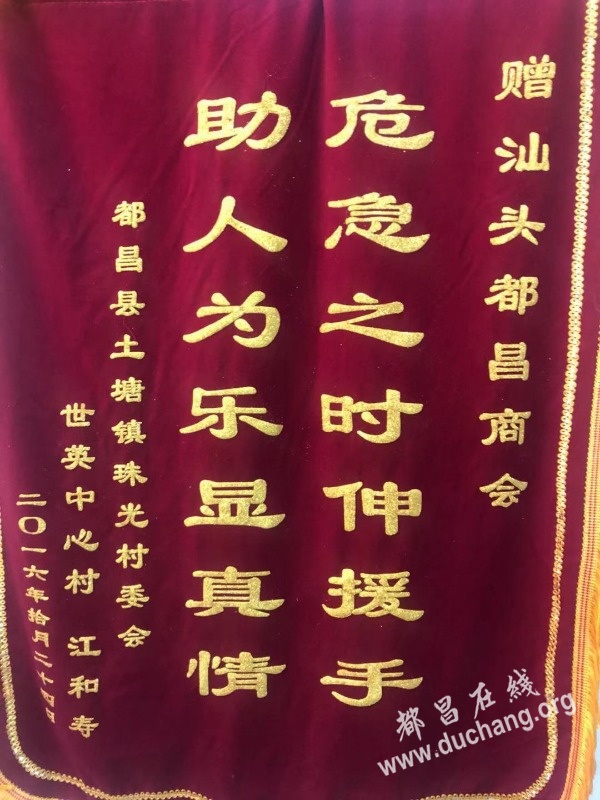 赠汕头都昌商会
危急之时伸援手
助人为乐显真情
都昌县土塘镇珠光村委会
世英中心村 江和寿
二〇一六年拾月二十四日
都昌在线
www.duchang.org